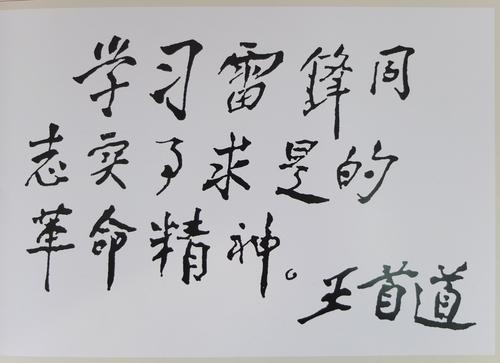 学习雷锋同
志实事求是的
革命精神。
王首道